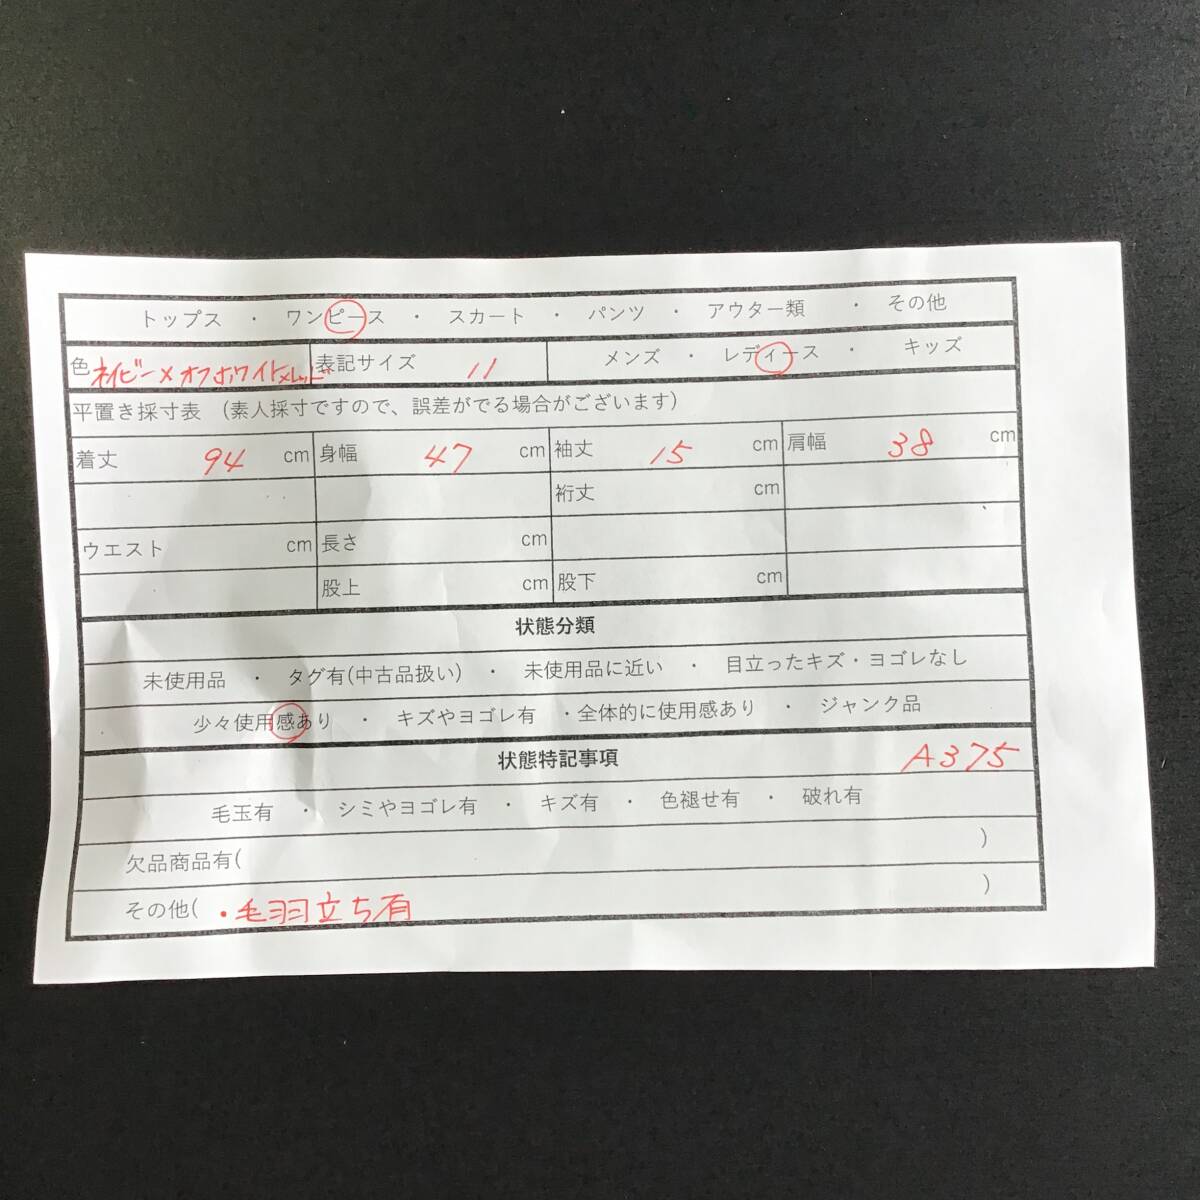 トップス ・ ワンピース ・ スカート ・ パンツ ・ アウター類 ・ その他
色 ネイビー×オフホワイト×レッド 表記サイズ 11 メンズ ・ レディース ・ キッズ
平置き採寸表 (素人採寸ですので、誤差がでる場合がございます)
着丈 94 cm 身幅 47 cm 袖丈 15 cm 肩幅 38 cm
裄丈 cm
ウエスト cm 長さ cm
股上 cm 股下 cm
状態分類
未使用品 ・ タグ有(中古品扱い) ・ 未使用品に近い ・ 目立ったキズ・ヨゴレなし
少々使用感あり ・ キズやヨゴレ有 ・全体的に使用感あり ・ ジャンク品
状態特記事項 A375
毛玉有 ・ シミやヨゴレ有 ・ キズ有 ・ 色褪せ有 ・ 破れ有
欠品商品有( )
その他( ・毛羽立ち有 )